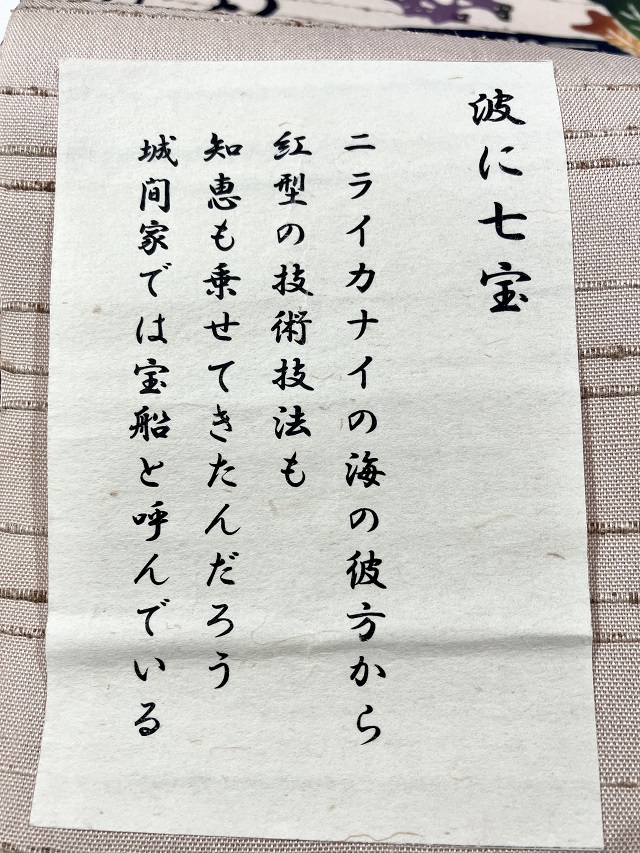 波に七宝
ニライカナイの海の彼方から
紅型の技術技法も
知恵も乗せてきたんだろう
城間家では宝船と呼んでいる